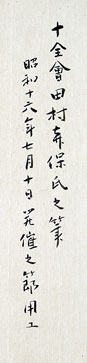 十全會田村春保氏之筆
昭和十六年七月十日茶催之節用工